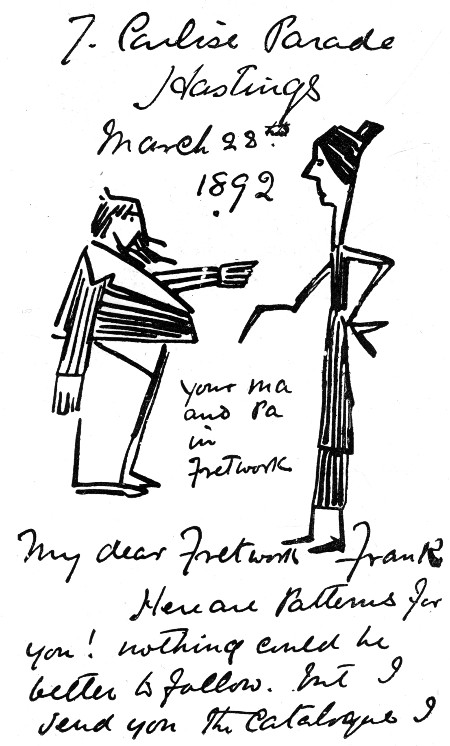 7. Carlise Parade
Hastings
March 28th
1892
your ma
and Pa
in
Fretwork
My dear Fretwork Frank
Here are Patterns for
you! nothing could be
better to follow. but I
send you the Catalogue I